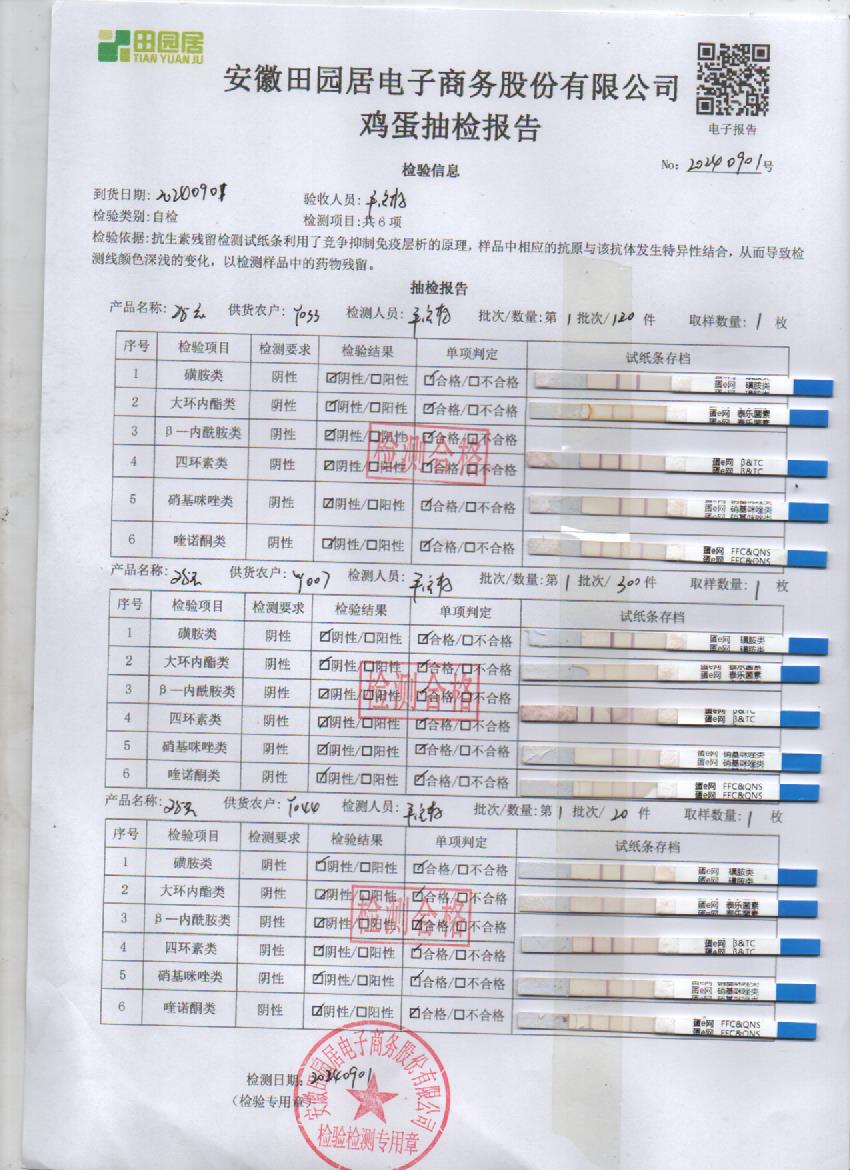 田园居
TIAN YUAN JU
安徽田园居电子商务股份有限公司
鸡蛋抽检报告
电子报告
No: 20240901号
检验信息
到货日期: 20240901 验收人员:
检验类别:自检 检测项目:共6项
检验依据:抗生素残留检测试纸条利用了竞争抑制免疫层析的原理,样品中相应的抗原与该抗体发生特异性结合,从而导致检
测线颜色深浅的变化,以检测样品中的药物残留。
抽检报告
产品名称: 供货农户: Y033 检测人员: 批次/数量:第 1 批次/ 120 件 取样数量: 1 枚
序号 检验项目 检测要求 检验结果 单项判定 试纸条存档
1 磺胺类 阴性 ☑阴性/☐阳性 ☑合格/☐不合格 蛋e网 磺胺类
2 大环内酯类 阴性 ☑阴性/☐阳性 ☑合格/☐不合格 蛋e网 泰乐菌素
3 β—内酰胺类 阴性 ☑阴性/☐阳性 ☑合格/☐不合格
检测合格
4 四环素类 阴性 ☑阴性/☐阳性 ☑合格/☐不合格 蛋e网 β&TC
5 硝基咪唑类 阴性 ☑阴性/☐阳性 ☑合格/☐不合格 蛋e网 硝基咪唑类
6 喹诺酮类 阴性 ☑阴性/☐阳性 ☑合格/☐不合格 蛋e网 FFC&QNS
产品名称: 供货农户: Y007 检测人员: 批次/数量:第 1 批次/ 300 件 取样数量: 1 枚
序号 检验项目 检测要求 检验结果 单项判定 试纸条存档
1 磺胺类 阴性 ☑阴性/☐阳性 ☑合格/☐不合格 蛋e网 磺胺类
2 大环内酯类 阴性 ☑阴性/☐阳性 ☑合格/☐不合格 蛋e网 泰乐菌素
3 β—内酰胺类 阴性 ☑阴性/☐阳性 ☑合格/☐不合格
检测合格
4 四环素类 阴性 ☑阴性/☐阳性 ☑合格/☐不合格 蛋e网 β&TC
5 硝基咪唑类 阴性 ☑阴性/☐阳性 ☑合格/☐不合格 蛋e网 硝基咪唑类
6 喹诺酮类 阴性 ☑阴性/☐阳性 ☑合格/☐不合格 蛋e网 FFC&QNS
产品名称: 供货农户: Y044 检测人员: 批次/数量:第 1 批次/ 20 件 取样数量: 1 枚
序号 检验项目 检测要求 检验结果 单项判定 试纸条存档
1 磺胺类 阴性 ☑阴性/☐阳性 ☑合格/☐不合格 蛋e网 磺胺类
2 大环内酯类 阴性 ☑阴性/☐阳性 ☑合格/☐不合格 蛋e网 泰乐菌素
3 β—内酰胺类 阴性 ☑阴性/☐阳性 ☑合格/☐不合格
检测合格
4 四环素类 阴性 ☑阴性/☐阳性 ☑合格/☐不合格 蛋e网 β&TC
5 硝基咪唑类 阴性 ☑阴性/☐阳性 ☑合格/☐不合格 蛋e网 硝基咪唑类
6 喹诺酮类 阴性 ☑阴性/☐阳性 ☑合格/☐不合格 蛋e网 FFC&QNS
检测日期: 20240901
(检验专用章)
安徽田园居电子商务股份有限公司
检验检测专用章